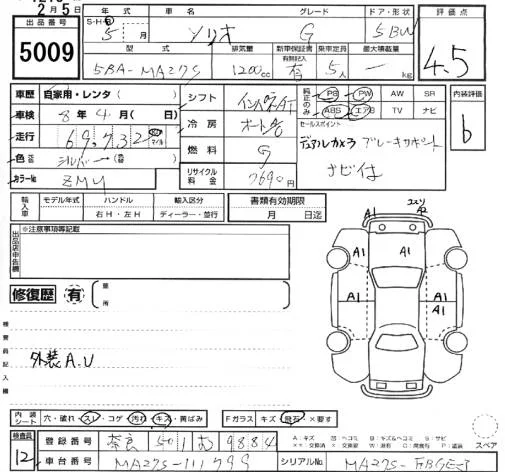 2月5日
出品番号 5009
年式 車名 グレード ドア・形状 評価点
S-H-R 5年 月 ソリオ G 5BW 4.5
型式 排気量 新車保証書 有無記入 乗車定員 最大積載量
5BA-MA27S 1200cc 有 5人 ー kg
車歴 自家用・レンタ ( ) シフト インパネAT 純正のみ PS PW AW SR 内装評価
車検 8年4月( 日) 冷房 オートA/C ABS エアB TV ナビ b
走行 69,732 km マイル セールスポイント
色 シルバー 燃料 G デュアルカメラブレーキサポート
カラーNo ZMU リサイクル料金 7690円 ナビ付
輸入車 モデル年式 ハンドル 輸入区分 書類有効期限
右H・左H ディーラー・並行 月 日迄
出品店申告欄 ※注意事項等記載
A1 A2
A1 A1 A1
A1 A1 A1
修復歴 有 ( 箇所
検査員記入欄
外装A.U
内装シート 穴・破れ・スレ・コゲ・汚れ・キズ・黄ばみ Fガラス キズ・飛石・×要す
検査員 12 登録番号 奈良 501 む 9884 スペア
車台番号 MA27S-111799 シリアルNo